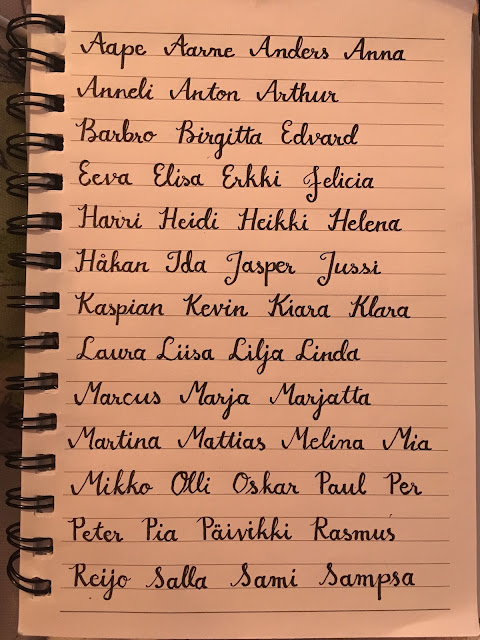 Aape Aarne Anders Anna
Anneli Anton Arthur
Barbro Birgitta Edvard
Eeva Elisa Erkki Felicia
Harri Heidi Heikki Helena
Håkan Ida Jasper Jussi
Kaspian Kevin Kiara Klara
Laura Liisa Lilja Linda
Marcus Marja Marjatta
Martina Mattias Melina Mia
Mikko Olli Oskar Paul Per
Peter Pia Päivikki Rasmus
Reijo Salla Sami Sampsa